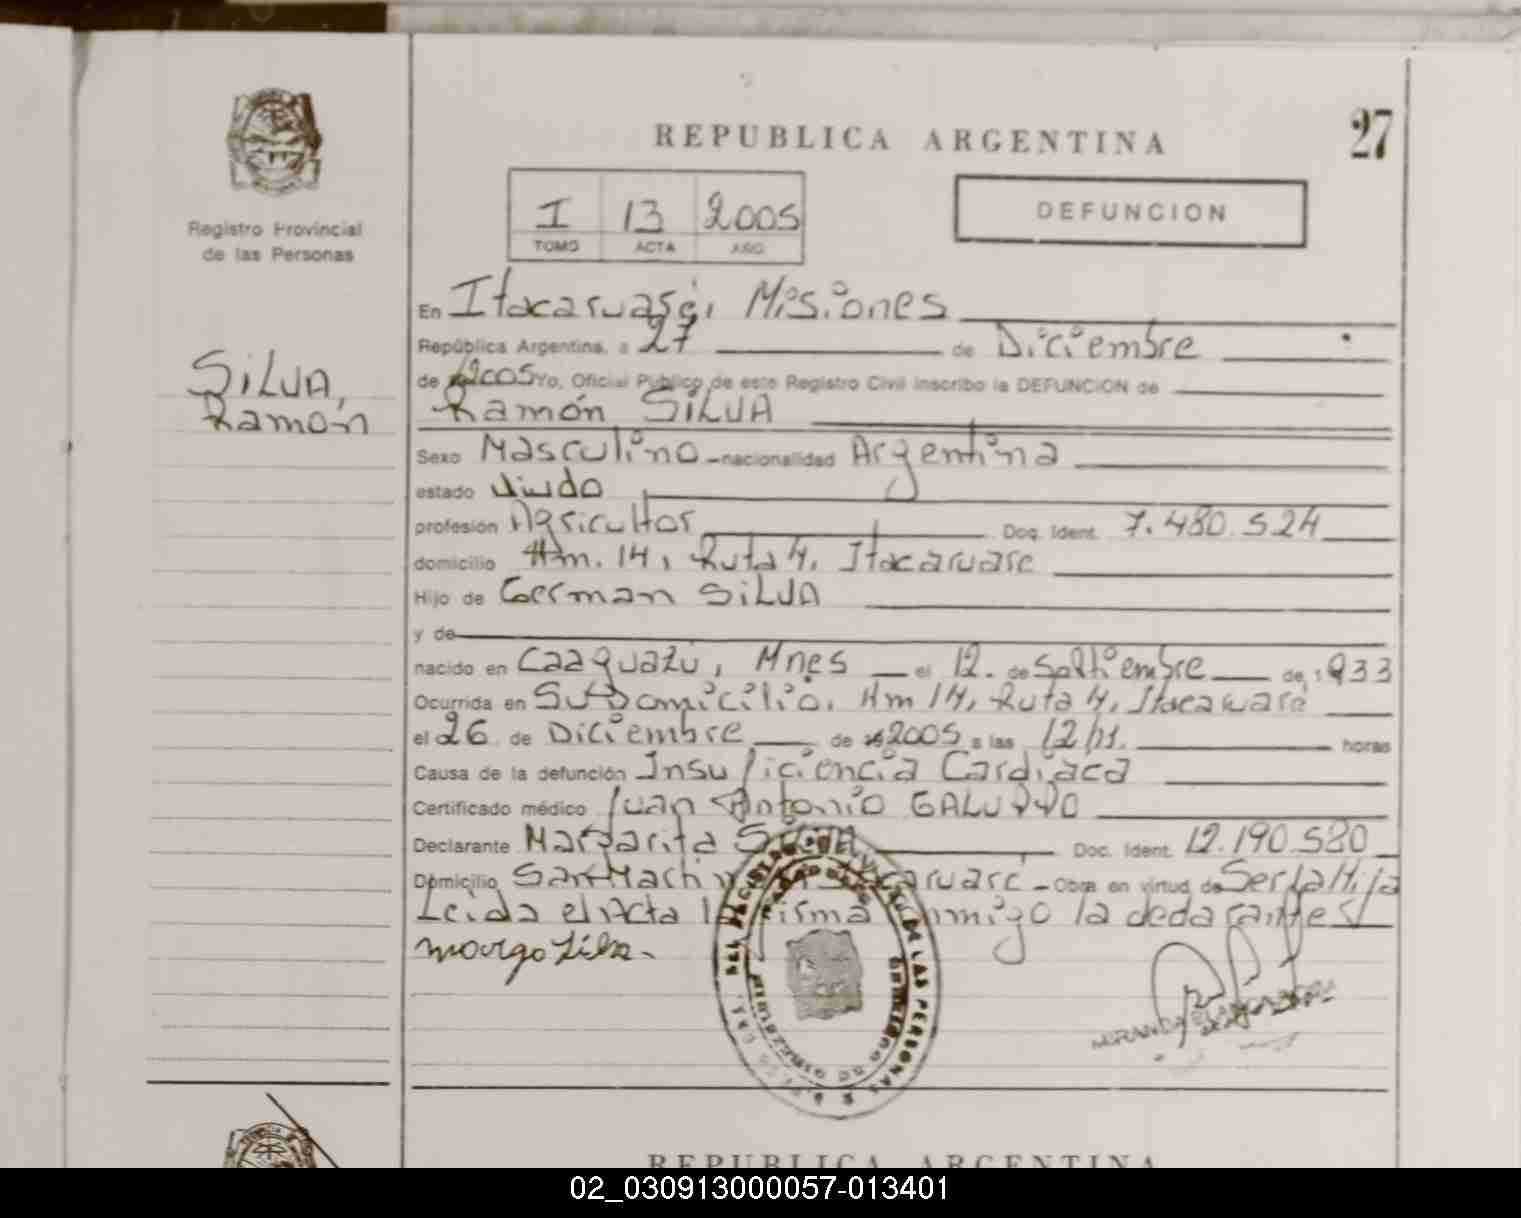 REPUBLICA ARGENTINA
27
Registro Provincial
de las Personas
I 13 2005
TOMO ACTA AÑO
DEFUNCION
SILVA,
Ramón
En Itacaruaré, Misiones
República Argentina, a 27 de Diciembre
de 2005 Yo, Oficial Público de este Registro Civil inscribo la DEFUNCION de
Ramón SILVA
Sexo Masculino - nacionalidad Argentina
estado Viudo
profesión Agricultor Doc. Ident. 7.480.524
domicilio Km. 14, Ruta 4, Itacaruare
Hijo de German SILVA
y de
nacido en Caaguazú, Mnes el 12. de Setiembre de 1933
Ocurrida en Su Domicilio, Km 14, Ruta 4, Itacaruaré
el 26 de Diciembre de 2005 a las 12 hs. horas
Causa de la defunción Insuficiencia Cardiaca
Certificado médico Juan Antonio
Declarante Margarita SILVA Doc. Ident. 12.190.580
Domicilio San Martin Itacaruare - Obra en virtud de Ser la Hija
Leida el Acta la firma conmigo la declarante
DE LAS PERSONAS
MIRANDA
REPUBLICA ARGENTINA
02_030913000057-013401